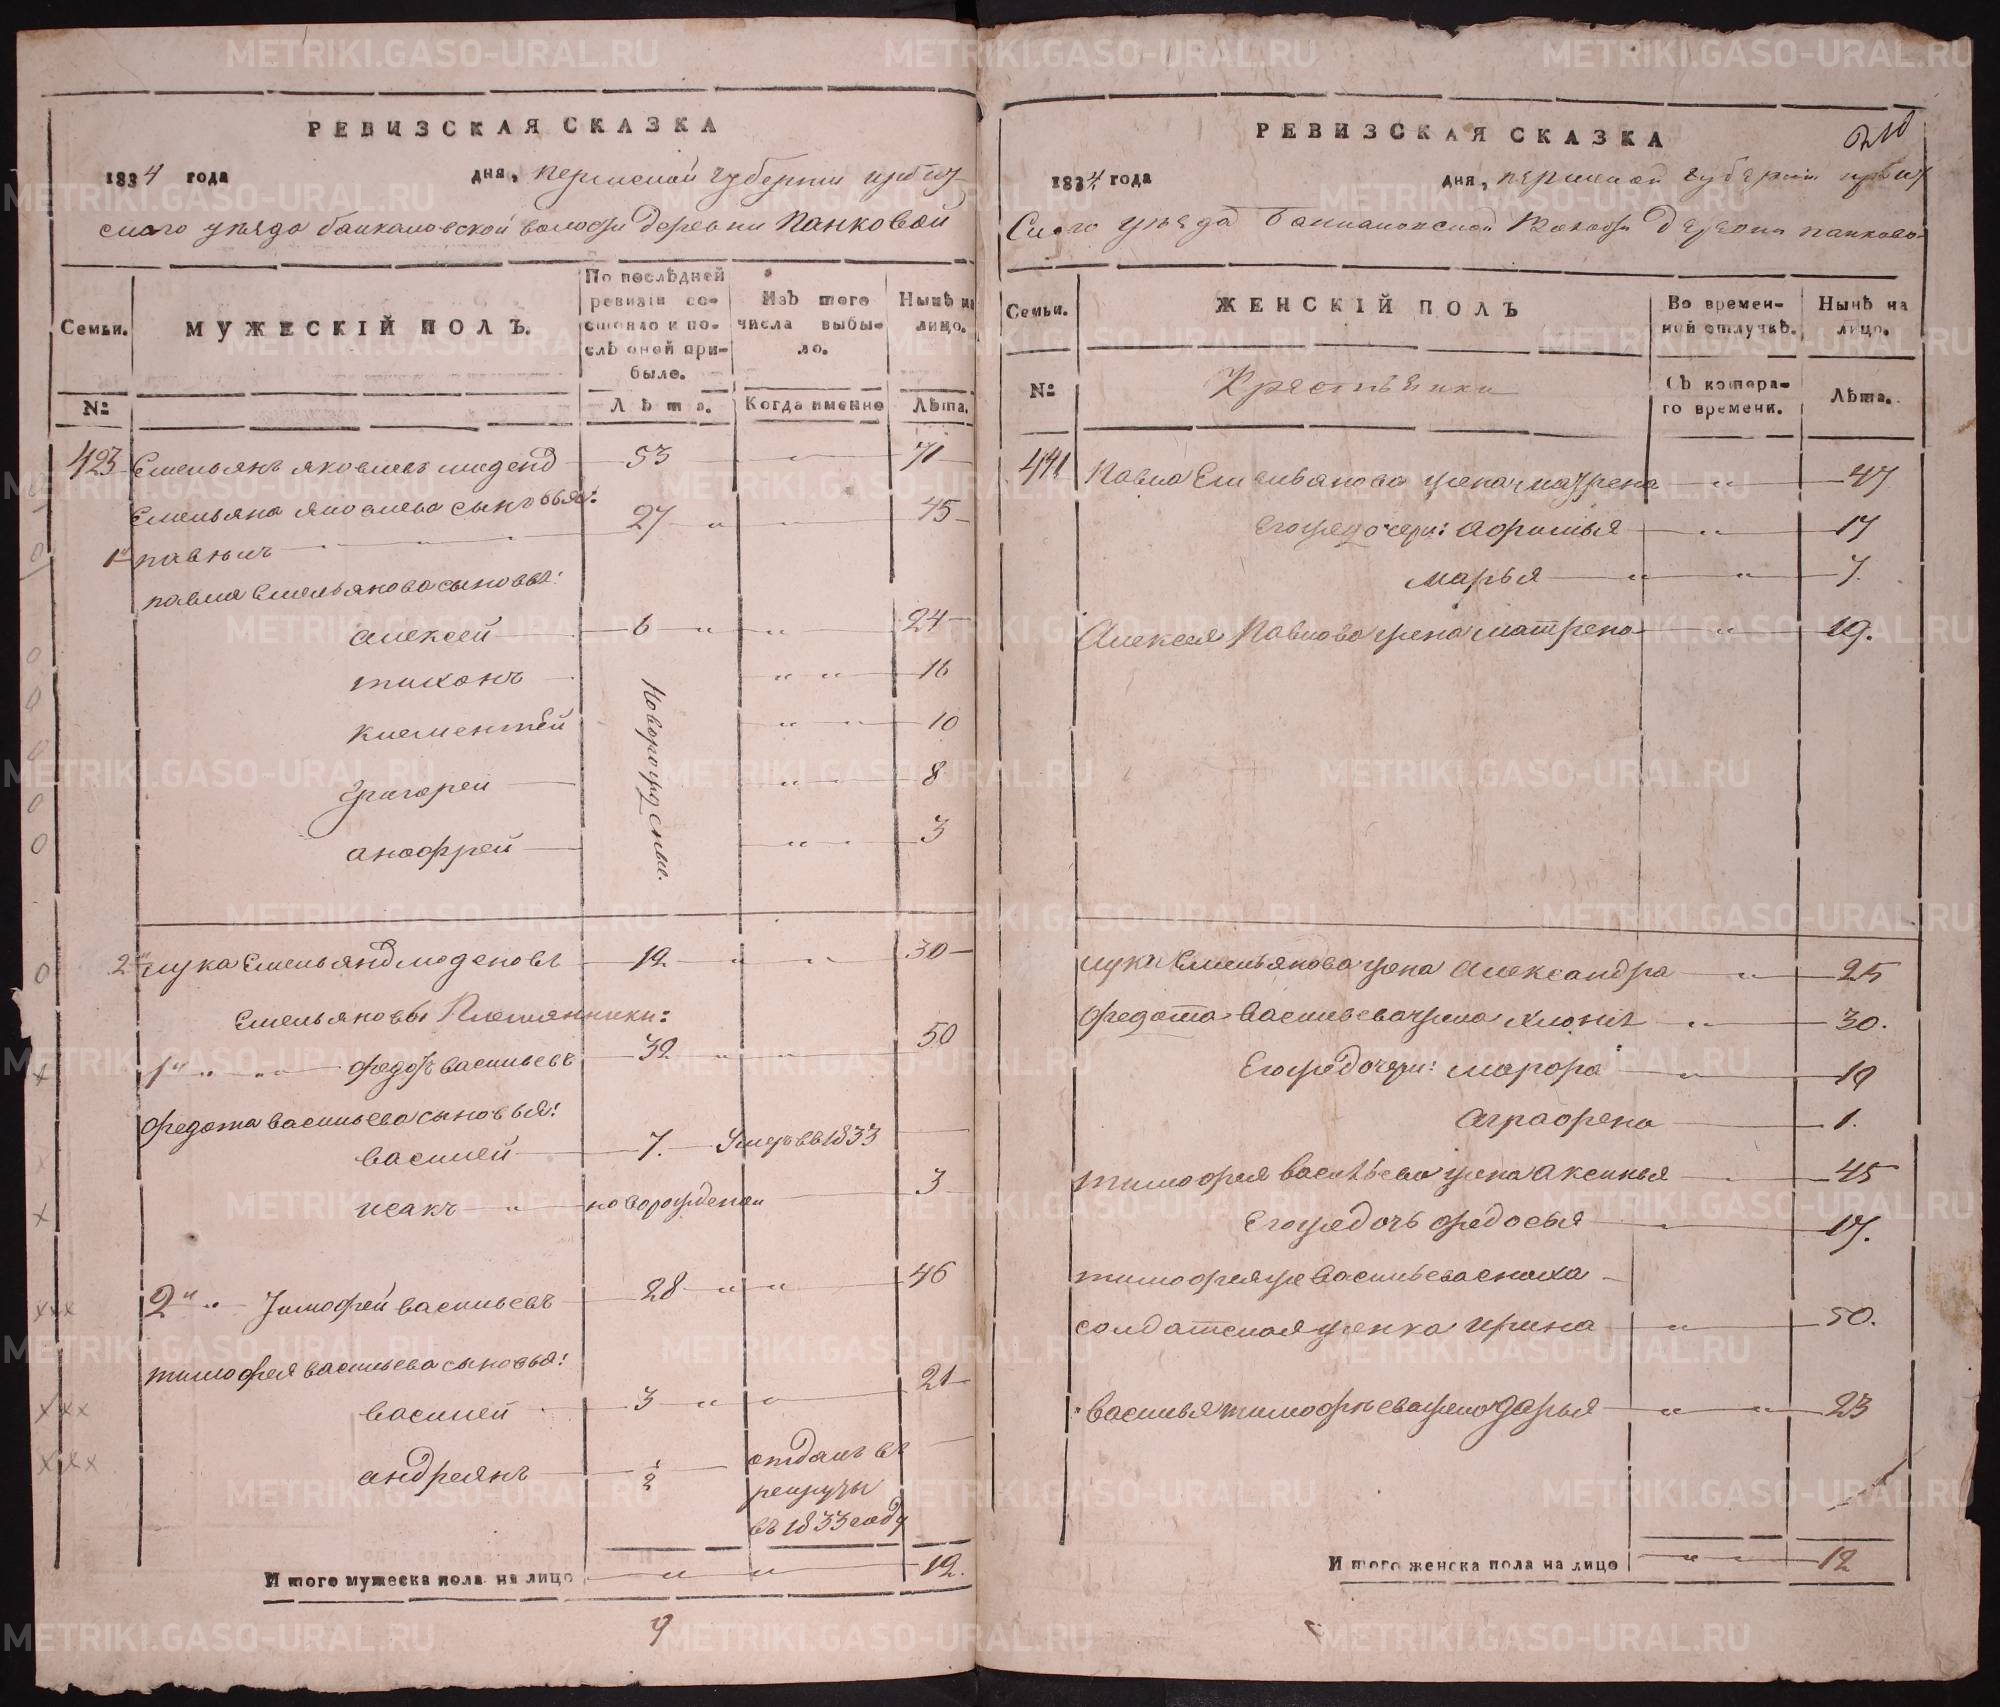 РЕВИЗСКАЯ СКАЗКА
1834 года дня, пермской губернии ирбит
скаго уѣзда баикаловской волости деревни Панковой
Семьи.
МУЖЕСКІЙ ПОЛЪ.
По послѣдней ревизіи состояло и послѣ оной прибыло.
Изъ того числа выбыло.
Нынѣ на лицо.
№
Лѣта.
Когда именно
Лѣта.
423 Емельянъ яковлевъ 53 " 71
Емельяна яковлева сыновья:
1й павелъ 27 " 45
павла Емельянова сыновья:
алексей 6 " " 24
тихонъ " " 16
клементей " " 10
григорей " " 8
анофрей " " 3
Новорожденные.
2й лука Емельянов 12 " " 30
Емельяновы Племянники:
1й " " " федотъ васильевъ 32 " " 50
федота васильева сыновья:
василей 7. Умеръ въ 1833
исакъ " новорожденой 3
2й " Тимофей васильевъ 28 " " 46
тимофея васильева сыновья:
василей 3 " " 21
андреянъ 1/2 отданъ въ
рекруты
въ 1833 году
И того мужеска пола на лицо " " 12.
9
РЕВИЗСКАЯ СКАЗКА
1834 года дня, пермской губернии ирбит
Скаго уѣзда Баикаловской Волости Деревни панково
Семьи.
ЖЕНСКІЙ ПОЛЪ
Во временной отлучкѣ.
Нынѣ на лицо.
№
Крестьянки
Съ котораго времени.
Лѣта.
441 Павла Емельянова жена " 47
Егожедочери: афимья " 17
марья " " 7.
Алексея Павлова жена матрена " 19.
луки Емельянова жена Александра " 25
федота васильева жена " 30.
Егоже дочери: марфа " 19
аграфена 1.
тимофея васильева жена аксинья " 45
Егожедочь федосья " 17.
тимофеяже васильева сноха
солдатская женка ирина " 50.
василья тимофѣева жена дарья " " 23
И того женска пола на лицо " " 12